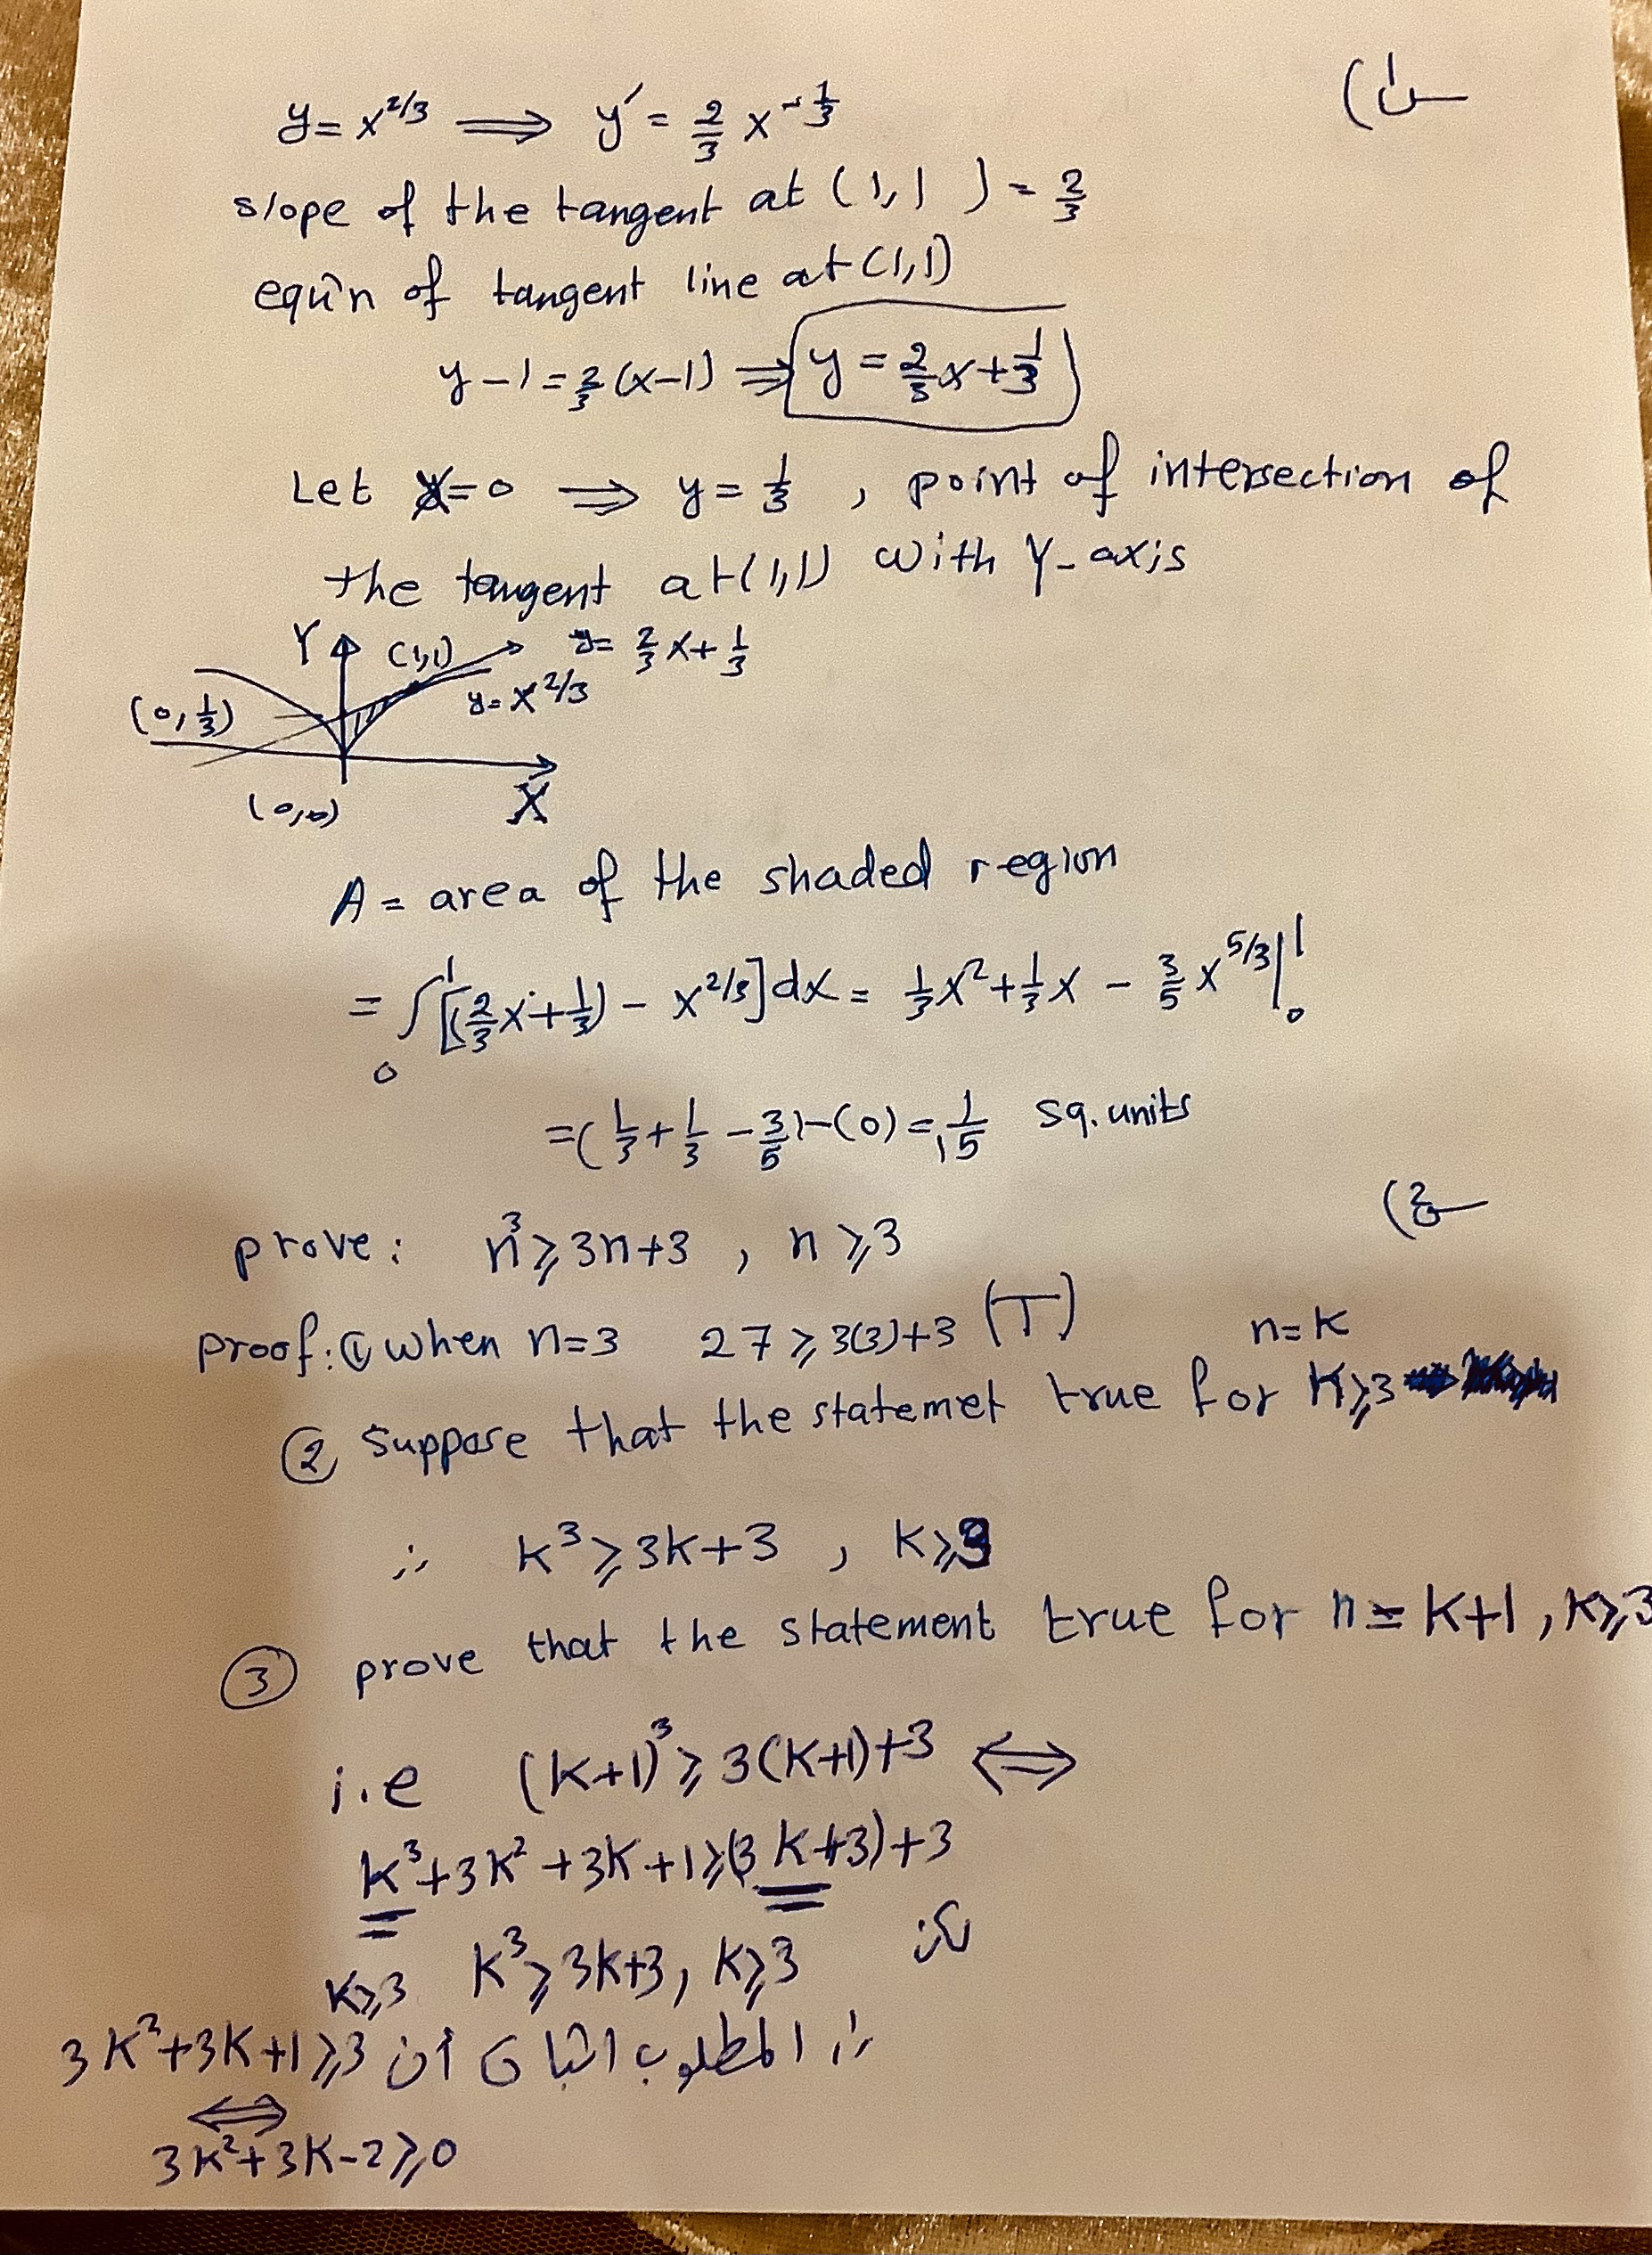 س1)
y = x^{2/3} ⟹ y′ = 2/3 x^{-1/3}
slope of the tangent at (1,1) = 2/3
equ'n of tangent line at (1,1)
y − 1 = 2/3 (x−1) ⟹ y = 2/3 x + 1/3
Let x=0 ⟹ y = 1/3 , point of intersection of
the tangent at (1,1) with Y-axis
Y (1,1) y = 2/3 x + 1/3
y = x^{2/3}
(0, 1/3)
(0,0) X
A = area of the shaded region
= ∫₀¹ [(2/3 x + 1/3) − x^{2/3}] dx = 1/3 x² + 1/3 x − 3/5 x^{5/3} |₀¹
= (1/3 + 1/3 − 3/5) − (0) = 1/15 sq. units
س2)
prove: n³ ⩾ 3n+3 , n ⩾ 3
proof: ① when n=3 27 ⩾ 3(3)+3 (T)
n=k
② suppose that the statemet true for K⩾3
∴ k³ ⩾ 3k+3 , k⩾3
③ prove that the statement true for n = k+1 , k⩾3
i.e (k+1)³ ⩾ 3(k+1)+3 ⟺
k³+3k²+3k+1 ⩾ (3k+3)+3
k³ ⩾ 3k+3 , k⩾3 لكن
k⩾3
∴ المطلوب اثبات أن 3k²+3k+1 ⩾ 3
⟺
3k²+3k−2 ⩾ 0